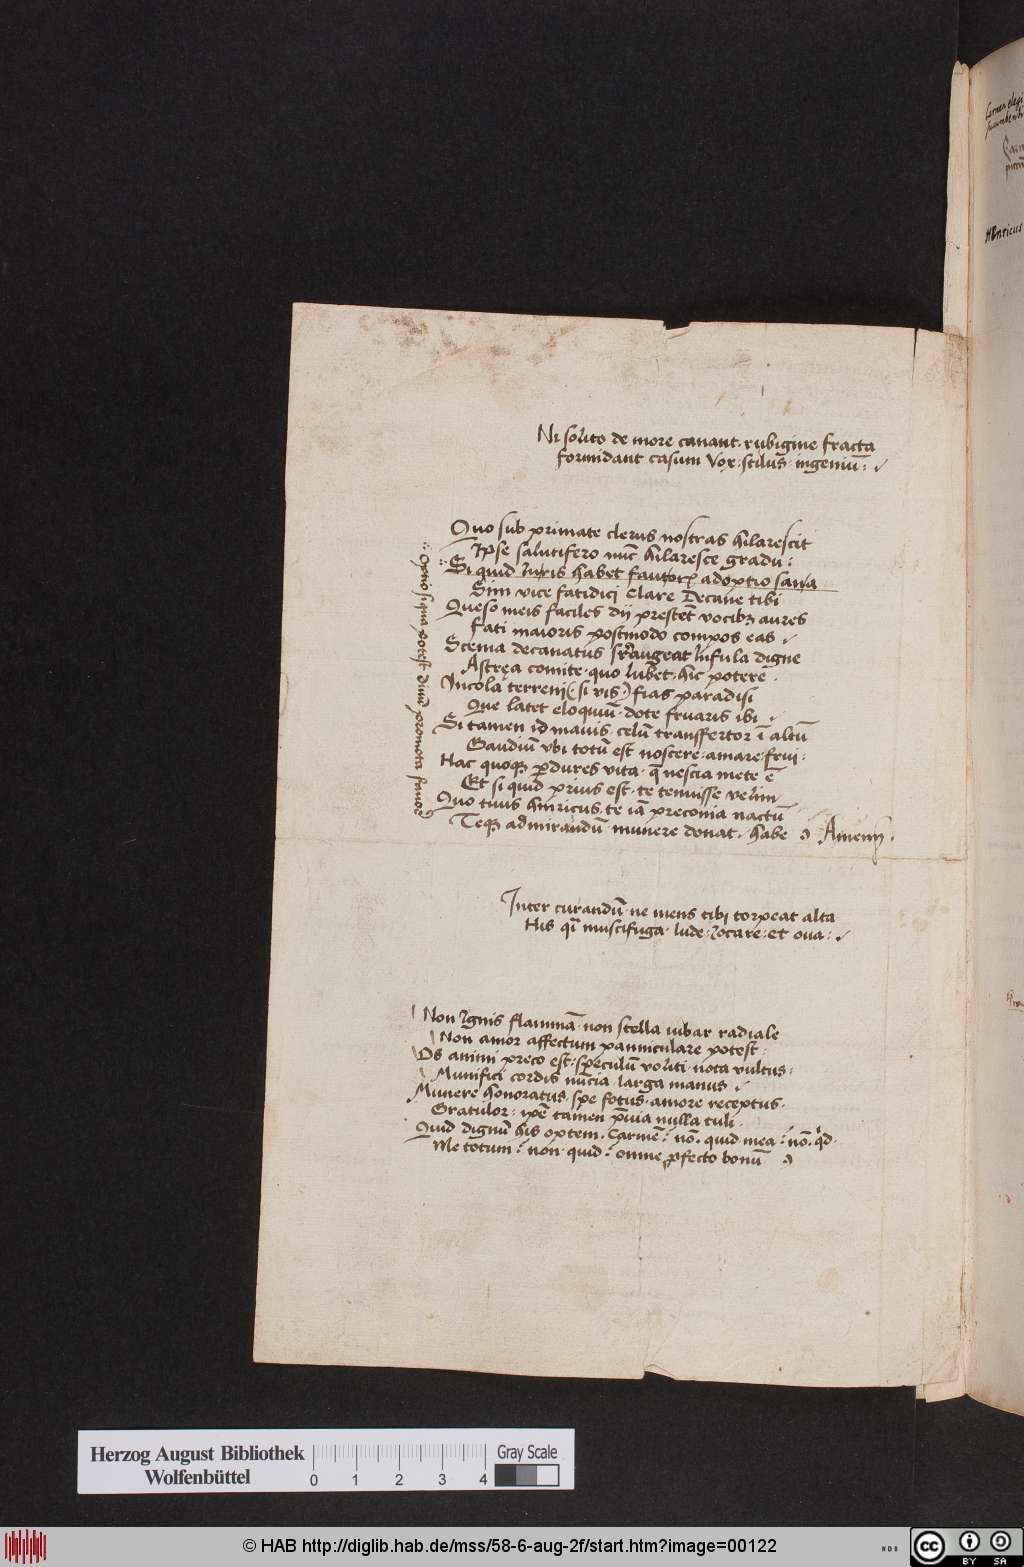 Ni solito de more canant. rubigine fracta
formidant casum Vox: stilus: ingeniū:
Quo sub primate clerus nostras hilarescit
Ipse salutifero nūc hilaresce gradu:
Si quid Iuris habet adoptio sana
Sim vice fatidici clare Decane tibi
Queso meis faciles dij prestēt vocibꝫ aures
fati maioris postmodo compos eas
Scema decanatus augeat Infula digne
Astręa comite. quo lubet. hic potere.
Incola terreni (si vis) fias paradisi
Que latet eloquiū. dote fruaris ibi
Si tamen id mavis. celū transffertor ī altū
Gaudiū vbi totū est noscere. amare. frui:
Hac quoqꝫ ꝑdures vita. q̄ nescia mete ē
Et si quid prius est. te tenuisse velim
Quo tuus hinricus. te iā preconia nactū
Teqꝫ admirandū. munere donat. habe Amen.
Optio si qua potest. promota
Inter curandū. ne mens tibi torpeat alta
His muscifuga. lude. Iocare. et oua:
Non Ignis flammā. non stella iubar radiale
Non amor affectum panniculare potest:
Os animi preco est: speculū voliti. nota vultus:
Munifici cordis nūcia larga manus
Munere honoratus. spe fotus. amore receptus.
Gratulor: tamen p̄uia nulla tuli.
Quid dignū his optem. Carmē: nō. quid mea: nō. qd.
Me totum: non. quid: omne ꝓfecto bonū
Henricus
Herzog August Bibliothek
Wolfenbüttel
0 1 2 3 4
Gray Scale
© HAB http://diglib.hab.de/mss/58-6-aug-2f/start.htm?image=00122
cc BY SA